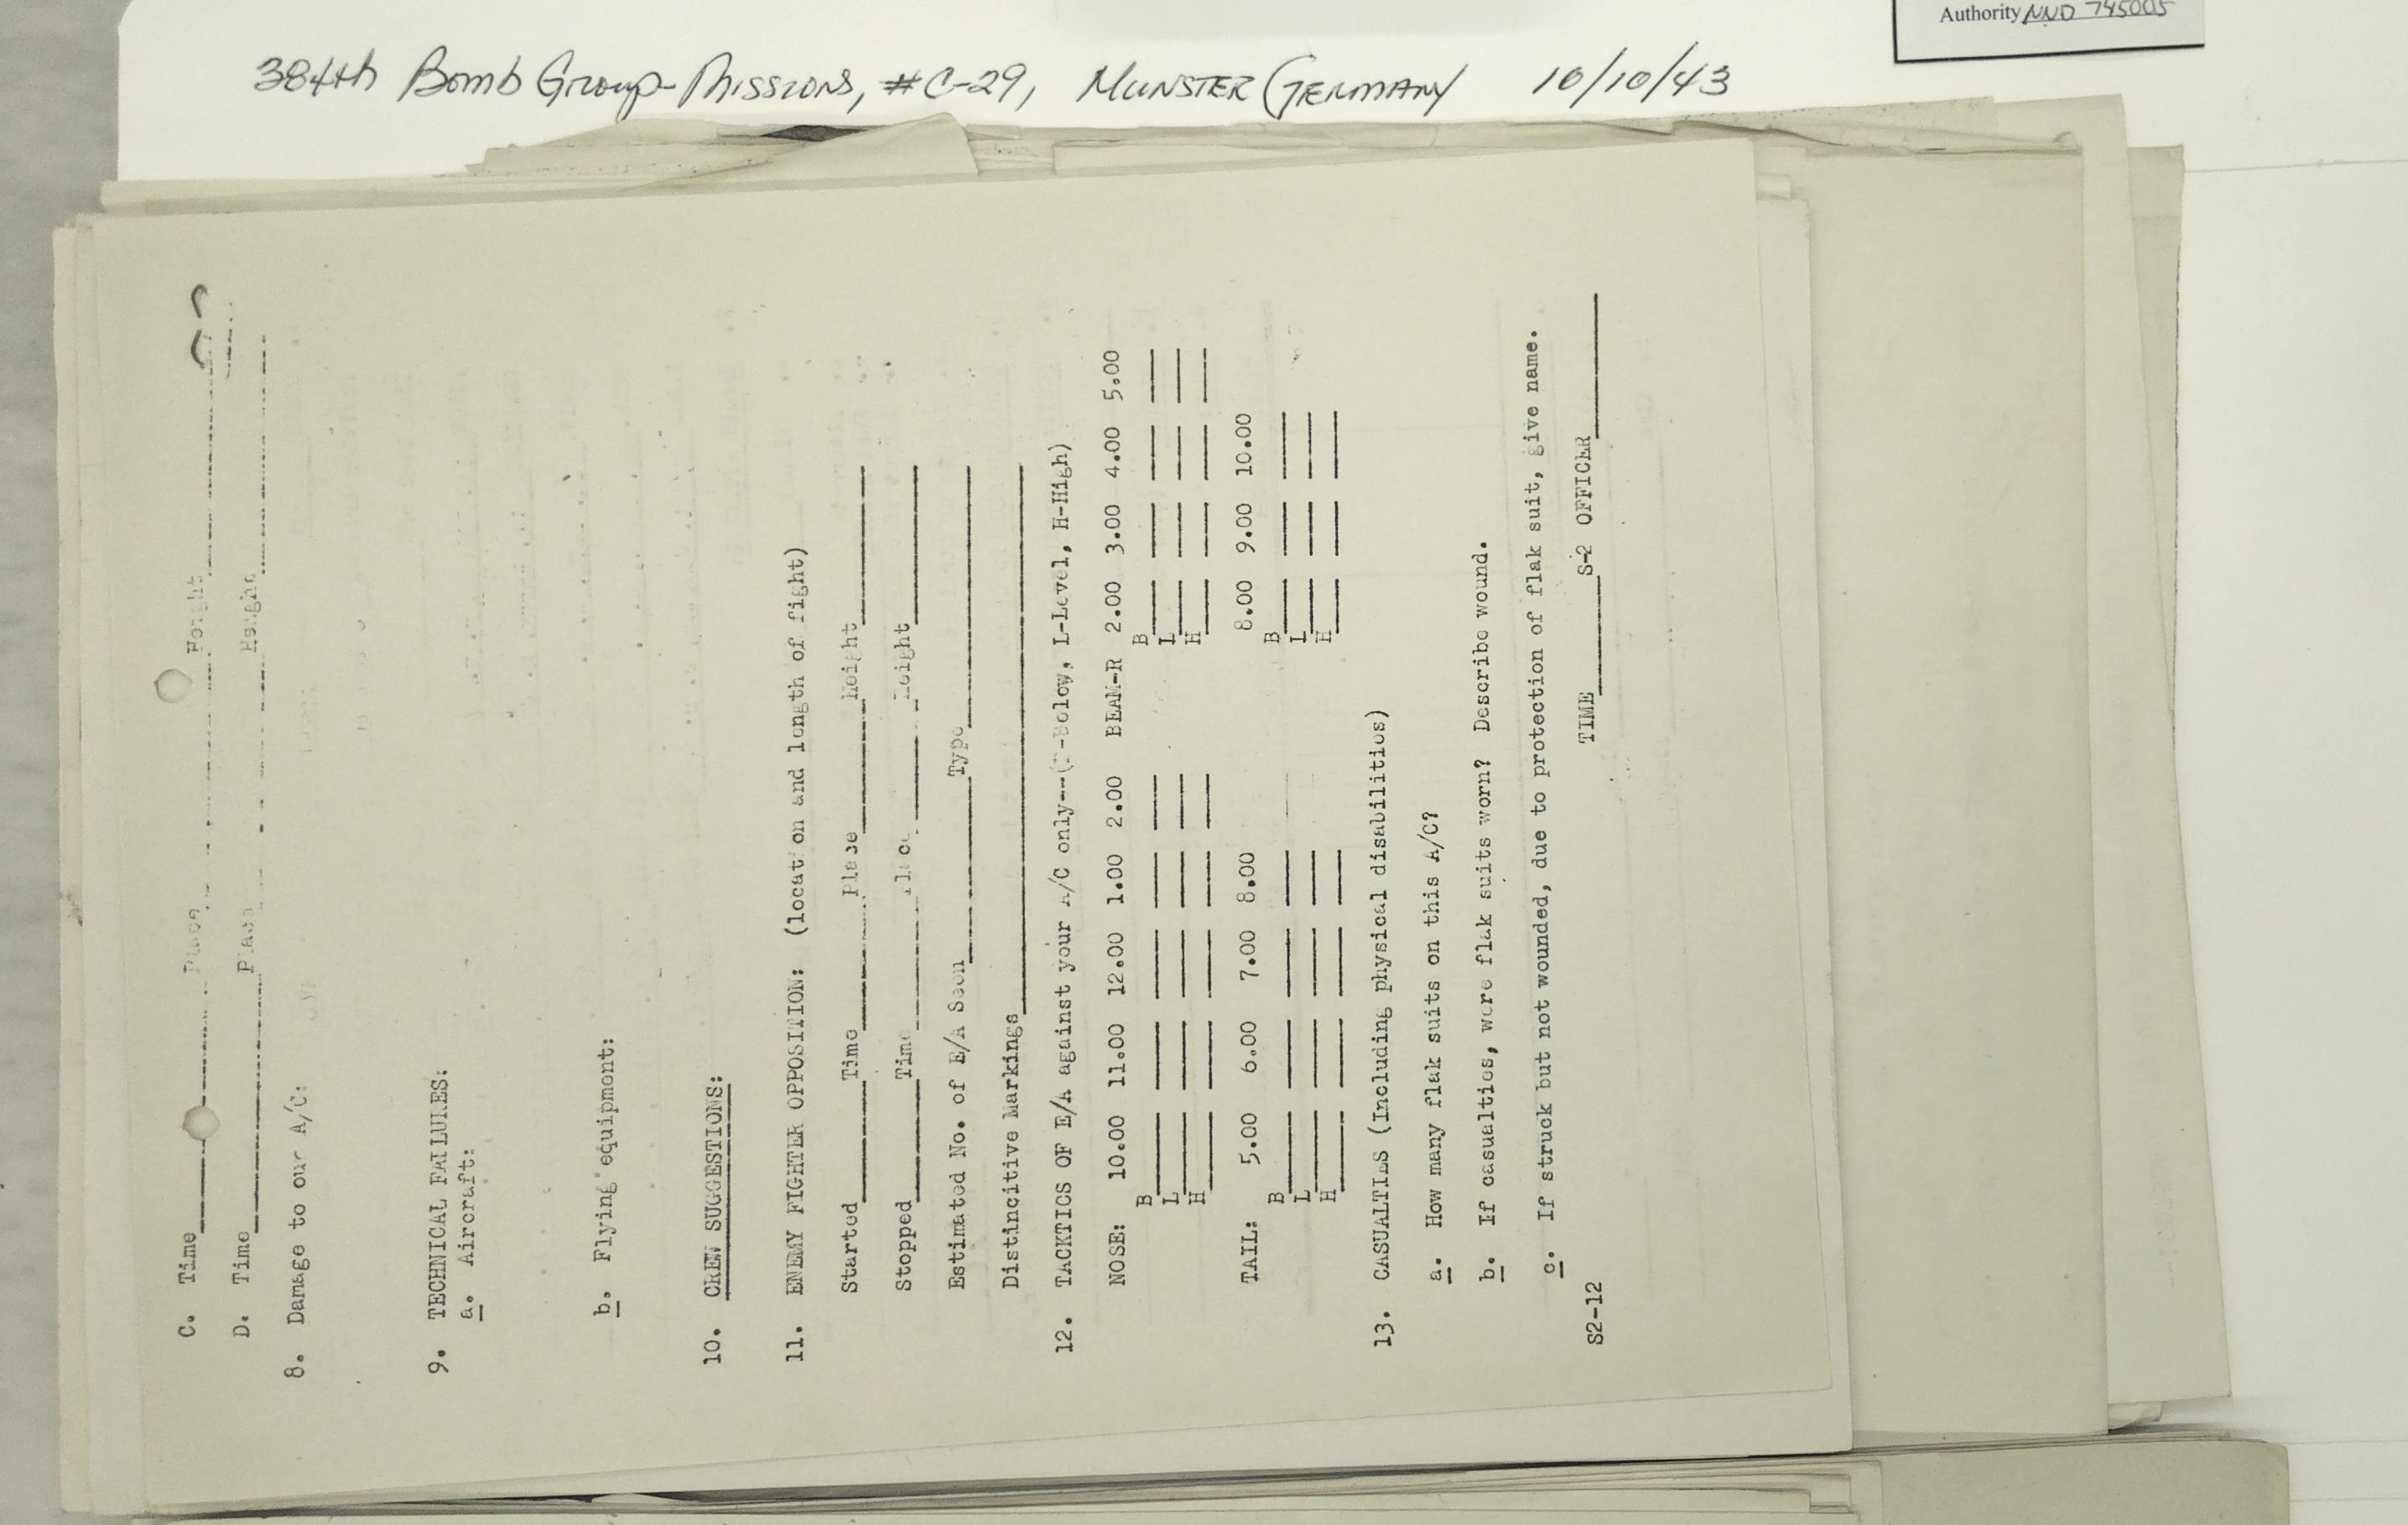 Authority NND 745005
384th Bomb Group-Missions, #C-29, MUNSTER GERMANY 10/10/43
C. Time Place Height
D. Time Place Height
8. Damage to our A/C:
9. TECHNICAL FAILURES:
a. Aircraft:
b. Flying equipment:
10. CREW SUGGESTIONS:
11. ENEMY FIGHTER OPPOSITION: (location and length of fight)
Started Time Place Height
Stopped Time Place Height
Estimated No. of E/A Seen Type
Distincitive Markings
12. TACKTICS OF E/A against your A/C only--(B-Below, L-Level, H-High)
NOSE: 10.00 11.00 12.00 1.00 2.00 BEAM-R 2.00 3.00 4.00 5.00
B B
L L
H H
TAIL: 5.00 6.00 7.00 8.00 8.00 9.00 10.00
B B
L L
H H
13. CASUALTIES (Including physical disabilities)
a. How many flak suits on this A/C?
b. If casualties, were flak suits worn? Describe wound.
c. If struck but not wounded, due to protection of flak suit, give name.
S2-12 TIME S-2 OFFICER